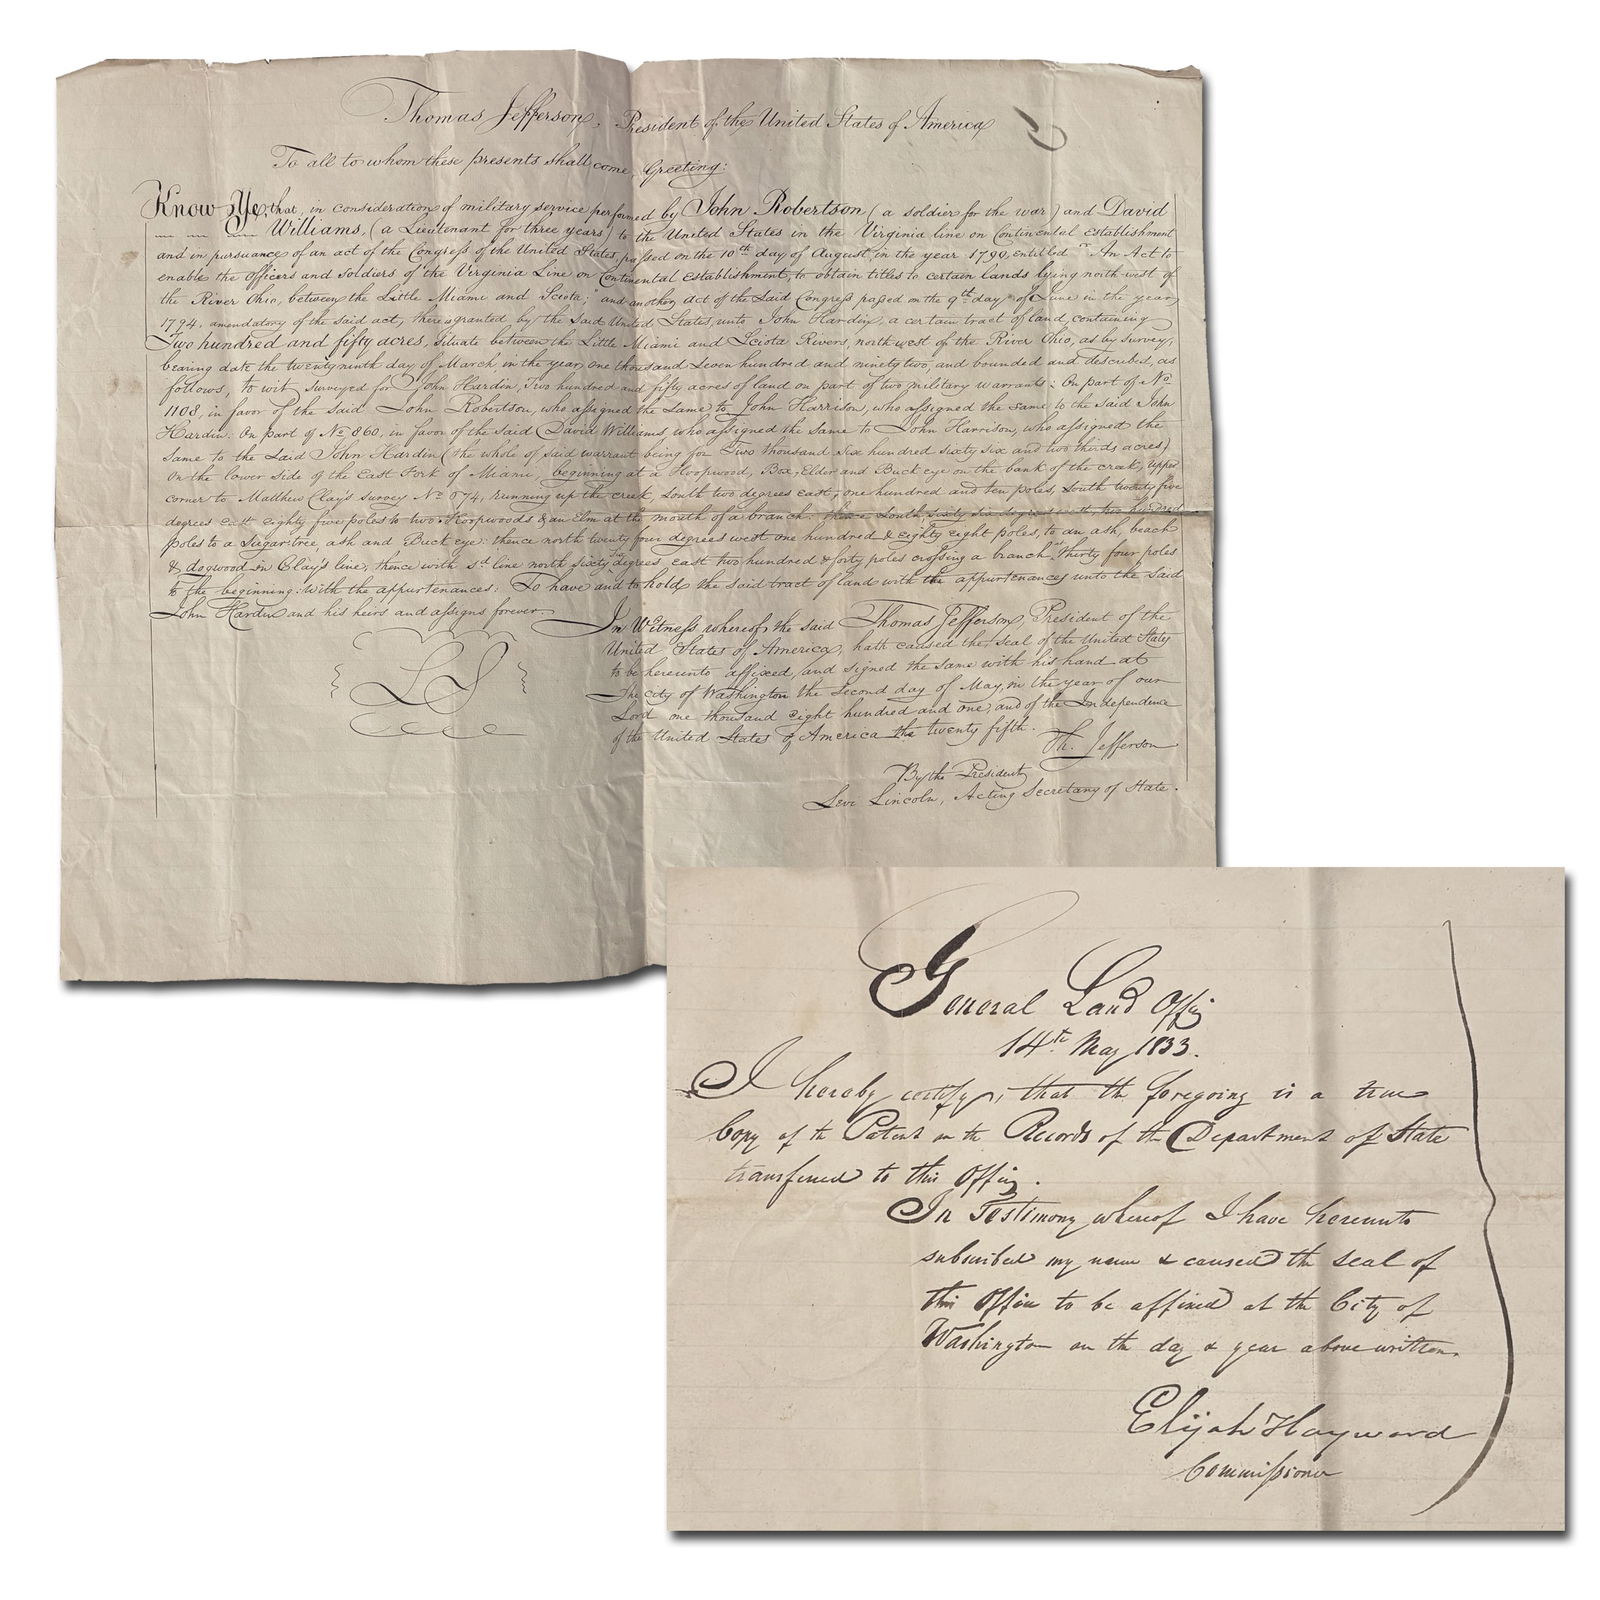 Thomas Jefferson, President of the United States of America
To all to whom these presents shall come, Greeting:
Know Ye, that, in consideration of military service performed by John Robertson (a soldier for the war) and David
Williams, (a Lieutenant for three years) to the United States in the Virginia line on Continental establishment
and in pursuance of an act of the Congress of the United States, passed on the 10th day of August, in the year 1790, entitled "An Act to
enable the officers and soldiers of the Virginia Line on Continental Establishment, to obtain titles to certain lands lying north west of
the River Ohio, between the Little Miami and Sciota;" and another act of the said Congress passed on the 9th day of June in the year
1794, amendatory of the said act, there is granted by the said United States, unto John Hardin, a certain tract of land, containing
Two hundred and fifty acres, situate between the Little Miami and Sciota Rivers, north west of the River Ohio, as by survey,
bearing date the twenty ninth day of March, in the year, one thousand seven hundred and ninety two, and bounded and described, as
follows, to wit, surveyed for John Hardin, Two hundred and fifty acres of land on part of two military warrants: On part of No
1108, in favor of the said John Robertson, who assigned the same to John Harrison, who assigned the same to the said John
Hardin: On part of No 860, in favor of the said David Williams, who assigned the same to John Harrison, who assigned the
same to the said John Hardin (the whole of said warrant being for Two thousand six hundred sixty six and two thirds acres)
On the lower side of the East Fork of Miami, beginning at a Hoopwood, Box, Elder and Buck eye on the bank of the creek, upper
corner to Matthew Clay's survey No 874, running up the creek, south two degrees east, one hundred and ten poles, south twenty five
degrees east eighty five poles to two Hoopwoods & an Elm at the mouth of a branch. thence South sixty six degrees west two hundred
poles to a sugar tree, ash and Buck eye: thence north twenty four degrees west one hundred & eighty eight poles, to an ash, beach
& dogwood in Clay's line, thence with sd line north sixty six degrees east two hundred & forty poles crossing a branch at thirty four poles
to the beginning: with the appurtenances: To have and to hold the said tract of land with the appurtenances unto the said
John Hardin and his heirs and assigns forever.
In Witness whereof, the said Thomas Jefferson, President of the
United States of America, hath caused the seal of the United States
to be hereunto affixed, and signed the same with his hand at
the city of Washington the second day of May, in the year of our
Lord one thousand eight hundred and one; and of the Independence
of the United States of America the twenty fifth.
LS
Th. Jefferson
By the President
Levi Lincoln, Acting Secretary of State.
General Land Office
14th May 1833.
I hereby certify, that the foregoing is a true
Copy of the Patent on the Records of the Department of State
transferred to this Office.
In Testimony whereof I have hereunto
subscribed my name & caused the seal of
this Office to be affixed at the City of
Washington on the day & year above written.
Elijah Hayward
Commissioner